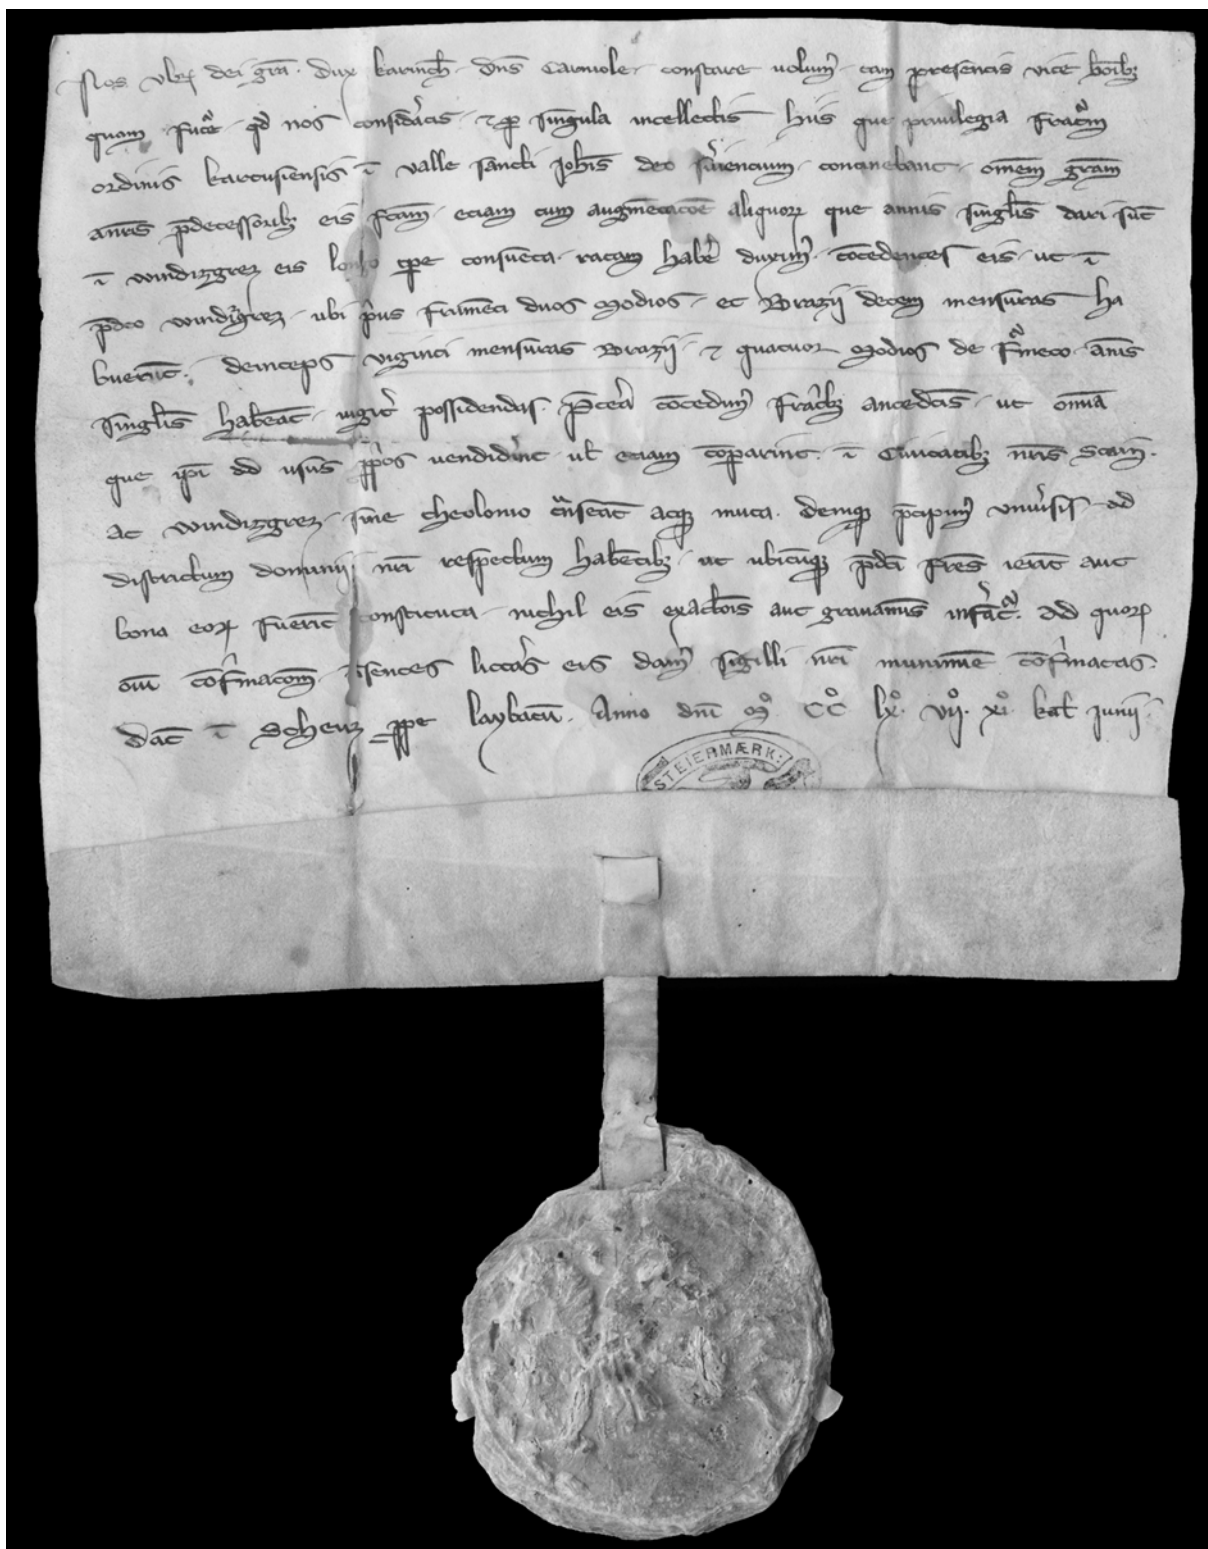 Nos Vlr̄ dei gr̄a. Dux karinth̄. Dn̄s Carniole. constare uolum᷒. tam presentis vite ho̅ib᷒
quam futͣe. qd̵ nos consid̾atis. ⁊ ꝑ singula intellectis hiis que priuilegia fratͣm
ordinis kartusiensis ī valle sancti Joh̄is deo s̾uiencium. continebant. om̄em gr̄am
an̄ris p̄decessorib᷒ eis f̄cam. eciam cum augm̄etacōe aliquoꝝ que annis singl̄is dari sūt
ī windizgrez eis longo tp̄e consueta. ratam hab̾e duxim᷒. cōcedentes eis. ut ī
p̄dc̄o windisgrez. ubi p̾us frum̄eti duos modios. et Brazii decem mensuras ha
buerūt. deinceps viginti mensuras Brazii. ⁊ quatuor modios de fͣm̄eto. an̄is
singl̄is habeāt. iugit̾ possidendas. P̄te̾a cōcedim᷒ frat̾b᷒ antedc̄is. ut om̄ia
que ip̄i ad usus ꝓp̾os uendid̾int. ul̄ eciam cōparint. ī Ciuitatib᷒ nr̄is Stain.
ac windizgrez. sine theolonio tͣnseāt atq᷒ muta. demq᷒ p̄cipim᷒ vniu̾sis ad
districtum dominii nr̄i respectum hab̄etib᷒. ut ubicūq᷒ p̄dc̄i fr̄es ierīt aut
bona eoꝝ fuerīt constituta. nichil eis exactōis aut grauaminis inf̾ātͣ. Ad quoꝝ
om̄i cōf̾macōm. p̄sentes litt̾as eis dam᷒ sigilli nr̄i munimīe cōf̾matas.
Dat̄ ī Scherz ꝓpe laybacū. Anno dn̄i mͦ. CCͦ lxͦ. viiͦ. xiͦ. kal̄ Junii.
STEIERMÆRK: